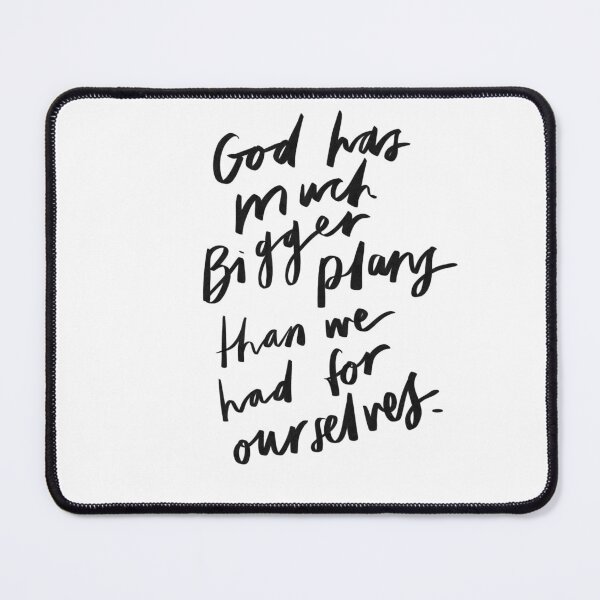 God has
much
Bigger plans
than we
had for
ourselves.